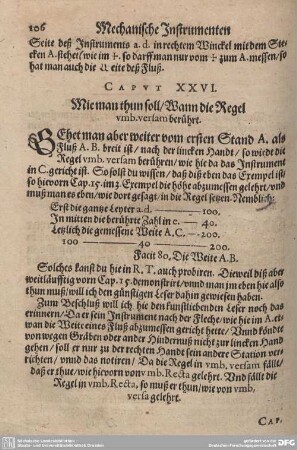 106 Mechanische Instrumenten
Seite deß Instruments a. d. in rechtem Winckel mit dem Ste-
cken A. stehet / wie im ÷. so darff man nur vom ÷ zum A. messen / so
hat man auch die Weite deß Fluß.
CAPVT XXVI.
Wie man thun soll / Wann die Regel
vmb. versam berührt.
GEhet man aber weiter vom ersten Stand A. als
Fluß A. B. breit ist / nach der lincken Handt / so wirdt die
Regel vmb. versam berühren / wie hie da das Instrument
in C. gericht ist. So solst du wissen / daß diß eben das Exempel ist /
so hievorn Cap. 15. im 2. Exempel die höhe abzumessen gelehrt / vnd
muß man es eben / wie dort gesagt / in die Regel setzen. Nemblich:
Erst die gantze Leyter a. d. — 100.
In mitten die berührte Zahl in e. — 40.
Letzlich die gemessene Weite A. C. — 200.
100 — 40 — 200.
Facit 80. Die Weite A. B.
Solches kanst du hie in R. T. auch probiren. Dieweil diß aber
weitläufftig vorn Cap. 15. demonstrirt / vnnd man im eben hie also
thun muß / will ich den günstigen Leser dahin gewiesen haben.
Zum Beschluß will ich hie den kunstliebenden Leser noch das
erinnern / Da er sein Instrument nach der Flech / wie hie im A. et-
wan die Weite eines Fluß abzumessen gericht hette / Vnnd köndte
von wegen Gräben oder ander Hindernuß nicht zur lincken Hand
gehen / soll er nur zu der rechten Handt sein andere Station ver-
richten / vnnd das notiren / Da die Regel in vmb. versam fällt /
daß er thue / wie hievorn von vmb. Recta gelehrt. Vnd fällt die
Regel in vmb. Recta, so muß er thun / wie von vmb.
versa gelehrt.
CAP.